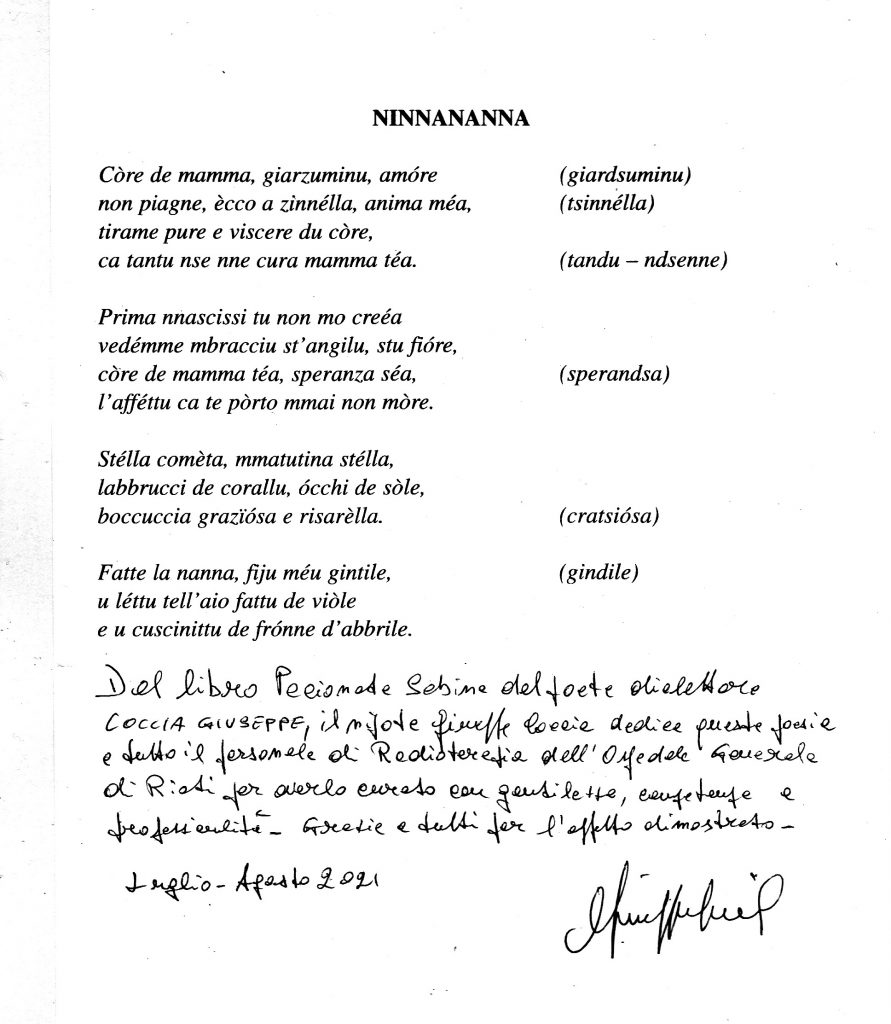 NINNANANNA
Còre de mamma, giarzuminu, amóre (giardsuminu)
non piagne, ècco a zinnélla, anima méa, (tsinnélla)
tirame pure e viscere du còre,
ca tantu nse nne cura mamma téa. (tandu – ndsenne)
Prima nnascissi tu non mo creéa
vedémme mbracciu st’angilu, stu fióre,
còre de mamma téa, speranza séa, (sperandsa)
l’afféttu ca te pòrto mmai non mòre.
Stélla comèta, mmatutina stélla,
labbrucci de corallu, ócchi de sòle,
boccuccia grazïósa e risarèlla. (cratsiósa)
Fatte la nanna, fiju méu gintile, (gindile)
u léttu tell’aio fattu de viòle
e u cuscinittu de frónne d’abbrile.
Dal libro Sabina del poeta dialettore
COCCIA GIUSEPPE, il nipote Giuseppe Coccia dedica questa poesia
a tutto il personale di Radioterapia dell'Ospedale Generale
di Rieti per averlo curato con gentilezza, competenza e
professionalità - Grazie a tutti per l'affetto dimostrato -
Luglio - Agosto 2021